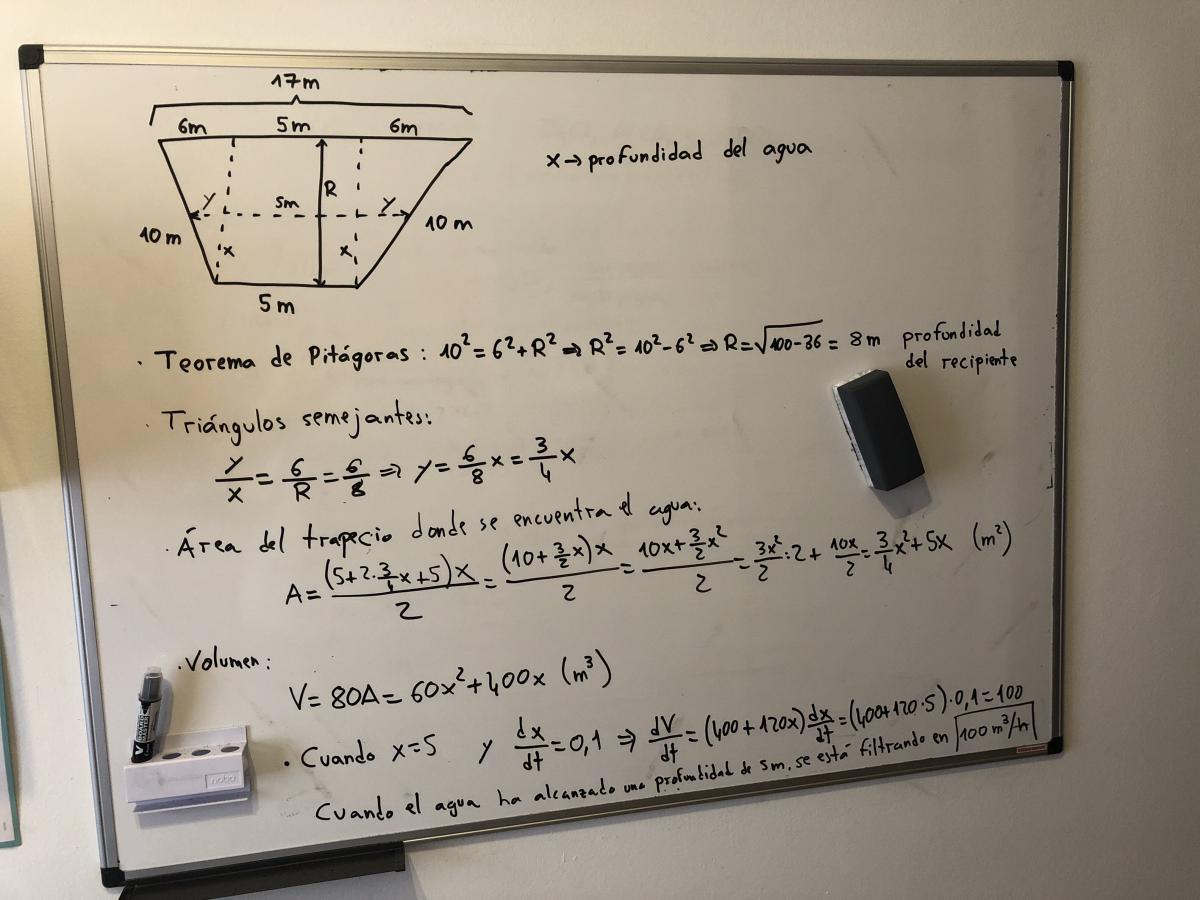 17m
6m 5m 6m
x→profundidad del agua
R
y 5m y
10m x x 10m
5m
· Teorema de Pitágoras: 10²=6²+R² ⇒ R²=10²-6² ⇒ R=√100-36 = 8m profundidad
del recipiente
· Triángulos semejantes:
y/x = 6/R = 6/8 ⇒ y = 6/8 x = 3/4 x
· Área del trapecio donde se encuentra el agua:
A = (5+2·3/4 x+5)x/2 = (10+3/2 x)x/2 = 10x+3/2 x²/2 = 3x²/2 :2 + 10x/2 = 3/4 x²+5x (m²)
· Volumen:
V=80A=60x²+400x (m³)
· Cuando x=5 y dx/dt=0,1 ⇒ dV/dt=(400+120x)dx/dt=(400+120·5)·0,1=100
Cuando el agua ha alcanzado una profundidad de 5m, se está filtrando en 100 m³/h
nobo
V BOARD MASTER